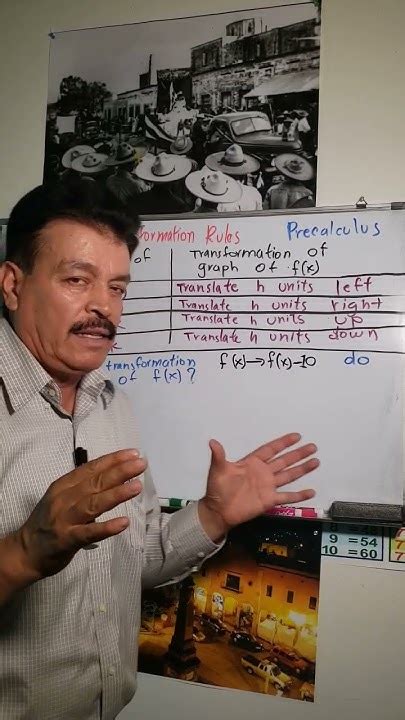 formation Rules Precalculus
of Transformation of
graph of f(x)
Translate h units left
Translate h units right
Translate h units up
Translate h units down
transformation f(x)→f(x)-10 do
of f(x)?
9 =54
10 =60